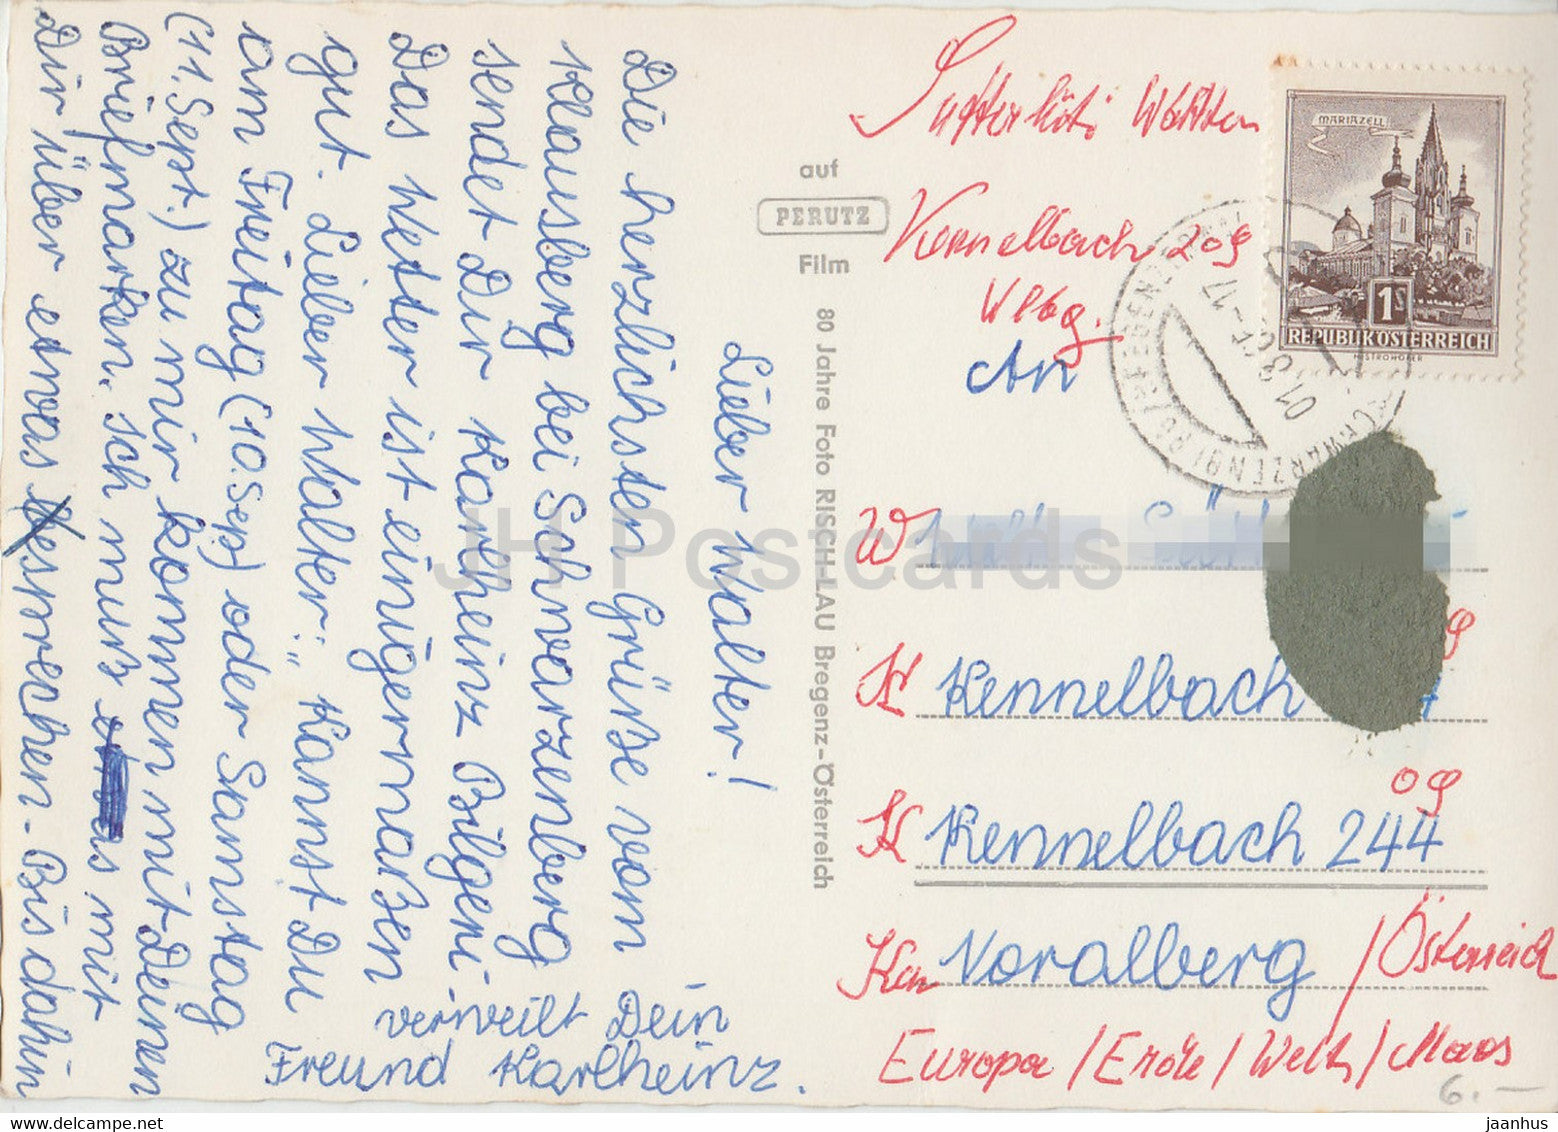 Lieber Walter!
Die herzlichsten Grüße vom
Klausberg bei Schwarzenberg
sendet Dir Karlheinz Bilgeri.
Das Wetter ist einigermaßen
gut. Lieber Walter: „Kannst Du
am Freitag (10.Sept) oder Samstag
(11.Sept.) zu mir kommen mit Deinen
Briefmarken. Ich muß mit
Dir über etwas besprechen. Bis dahin
verweilt Dein
Freund Karlheinz.
auf
PERUTZ
Film
80 Jahre Foto RISCH-LAU Bregenz-Österreich
Kennelbach 209
Vlbg.
An
W
K Kennelbach
9
K Kennelbach 244
09
Voralberg / Österreich
Europa / Erde / Welt /
MARIAZELL
1S
REPUBLIK ÖSTERREICH
SCHWARZENBERG
BREGENZERWALD
-17
6.-
JH Postcards
jaanhus
www.delcampe.net